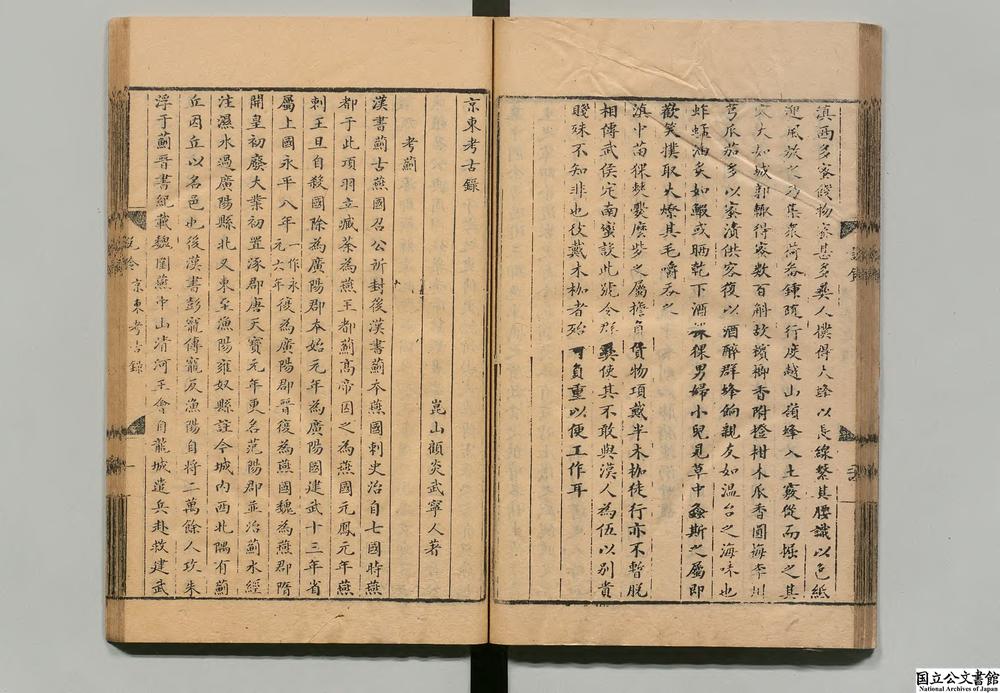 滇西多蜜餞物蜜甚多彝人撲得大蜂以長線繫其腰識以色紙
迎風放之乃集衆荷畚鍤隨行度越山嶺蜂入土竅從而掘之其
穴大如城郭輒得蜜數百斛故檳榔香附橙柑木瓜香圓海李川
芎瓜茄多以蜜漬供客復以酒醉群蜂餉親友如溫台之海味也
蚱蜢油炙如蝦或晒乾下酒猓男婦小兒見草中螽斯之屬即
歡笑撲取火燎其毛嚼吞之
滇中苗猓僰爨麽些之屬擔負貨物項戴半木枷徒行亦不暫脫
相傳武侯定南蠻設此號令群彝使其不敢與漢人為伍以別貴
賤殊不知非也伎戴木枷者殆可負重以便工作耳
京東考古錄
崑山顧炎武寧人著
考薊
漢書薊古燕國召公所封後漢書薊本燕國刺史治自七國時燕
都于此項羽立臧荼為燕王都薊高帝因之為燕國元鳳元年燕
刺王旦自殺國除為廣陽郡本始元年為廣陽國建武十三年省
屬上國永平八年一作永元六年復為廣陽郡晉復為燕國魏為燕郡隋
開皇初廢大業初置涿郡唐天寶元年更名范陽郡並治薊水經
注濕水過廣陽縣北又東至漁陽雍奴縣註今城內西北隅有薊
丘因丘以名邑也後漢書彭寵傳寵反漁陽自將二萬餘人攻朱
浮于薊晉書紀載魏圍燕中山清河王會自龍城遣兵赴救建武
說鈴
京東考古錄
一
国立公文書館
National Archives of Japan